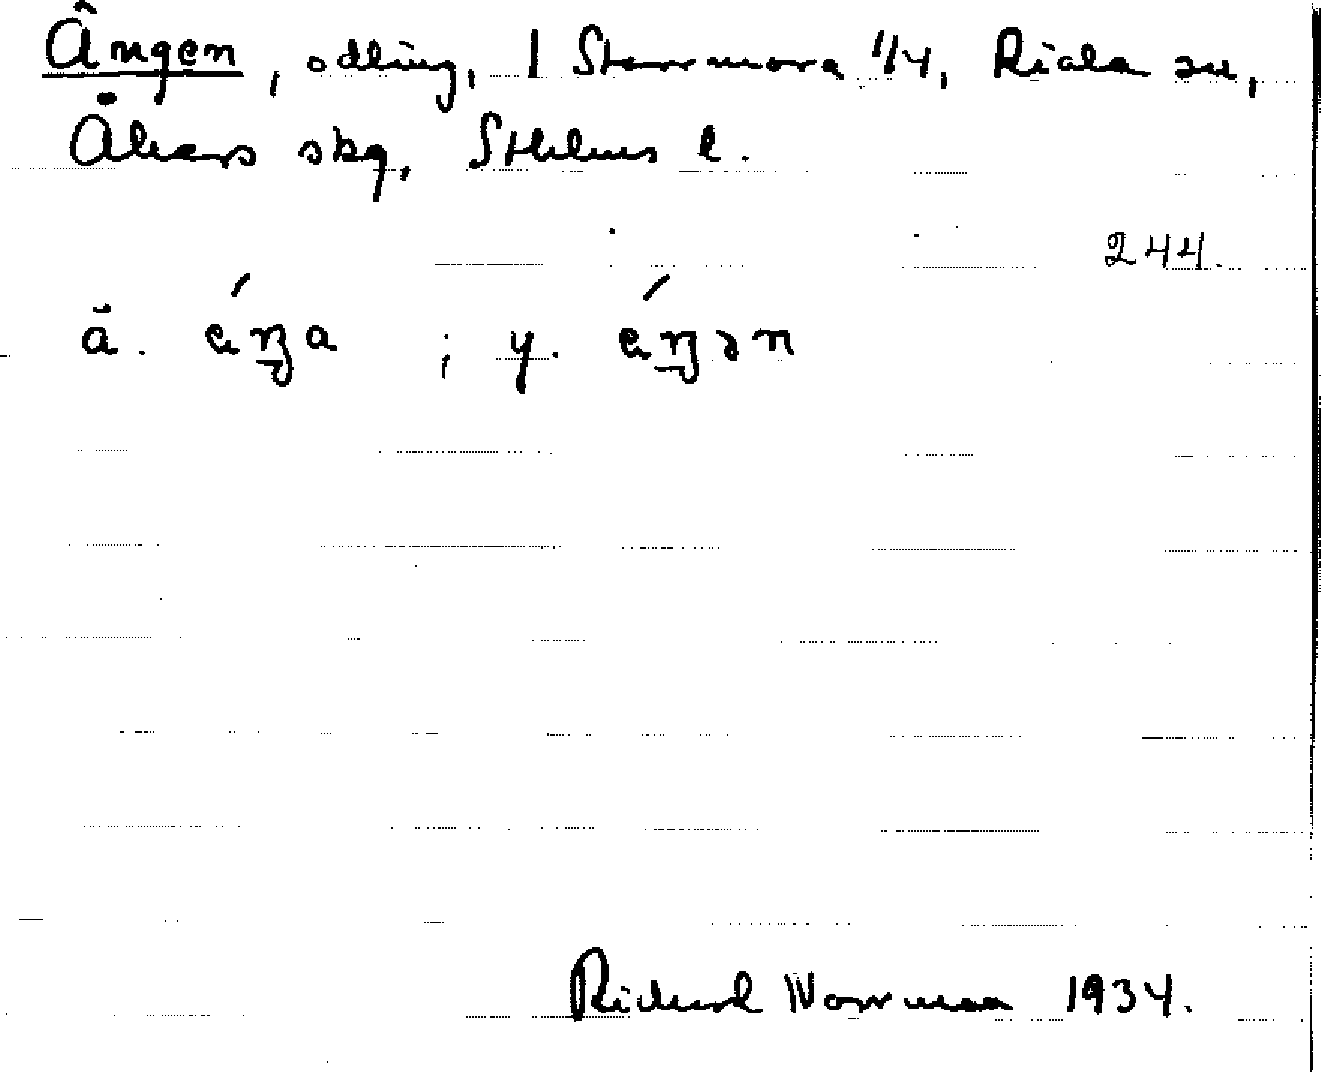 Ängen, odling, 1 Starrmora 1/4, Riala sn,
Åkers skg, Sthlms l.
244.
ä. éŋa ; y. éŋən
Richard Norrman 1934.